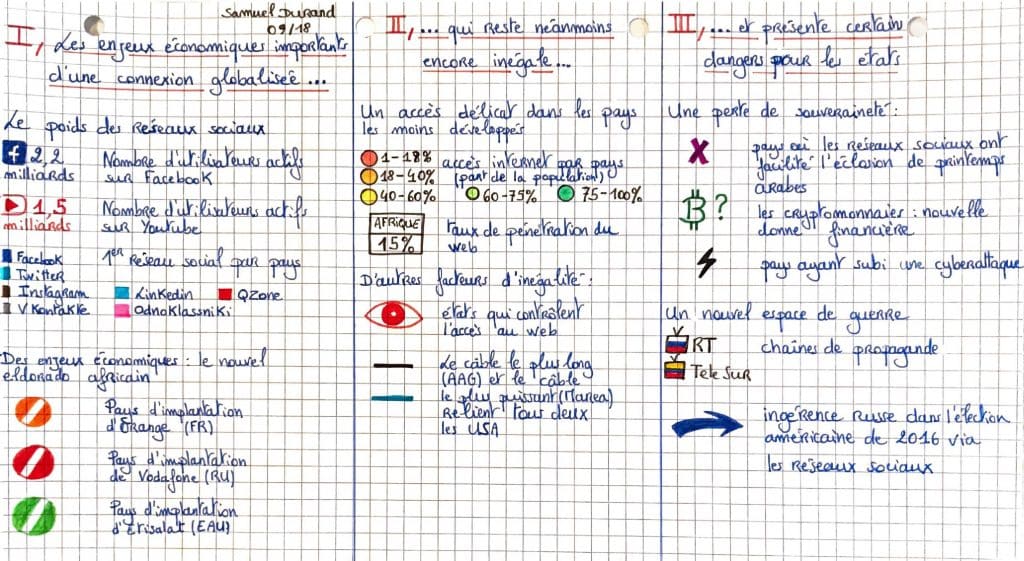 Samuel Durand
09/18
I, Les enjeux économiques importants
d'une connexion globalisée ...
Le poids des réseaux sociaux
2,2
milliards
Nombre d'utilisateurs actifs
sur Facebook
1,5
milliards
Nombre d'utilisateurs actifs
sur Youtube
Facebook
Twitter
Instagram
V Kontakte
1er réseau social par pays
Linkedin
QZone
Odnoklassniki
Des enjeux économiques : le nouvel
eldorado africain
Pays d'implantation
d'Orange (FR)
Pays d'implantation
de Vodafone (RU)
Pays d'implantation
d'Etisalat (EAU)
II, ... qui reste néanmoins
encore inégale ...
Un accès délicat dans les pays
les moins développés
1-18%
18-40%
accès internet par pays
(part de la population)
40-60% 60-75% 75-100%
AFRIQUE
15%
taux de pénétration du
web
D'autres facteurs d'inégalité :
états qui contrôlent
l'accès au web
Le câble le plus long
(AAG) et le câble
le plus puissant (Marea)
relient tous deux
les USA
III, ... et présente certain
dangers pour les états
Une perte de souveraineté :
X
pays où les réseaux sociaux ont
facilité l'éclosion de printemps
arabes
₿ ?
les cryptomonnaies : nouvelle
donne financière
pays ayant subi une cyberattaque
Un nouvel espace de guerre
RT
Tele Sur
chaînes de propagande
ingérence russe dans l'élection
américaine de 2016 via
les réseaux sociaux